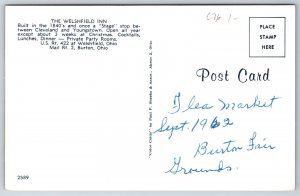 THE WELSHFIELD INN
Built in the 1840's and once a "Stage" stop be-
tween Cleveland and Youngstown. Open all year
except about 3 weeks at Christmas. Cocktails,
Lunches, Dinner — Private Party Rooms.
U.S. Rt. 422 at Welshfield, Ohio
Mail Rt. 2, Burton, Ohio
PLACE
STAMP
HERE
Post Card
Flea Market
Sept. 1962
Burton Fair
Grounds.
2589